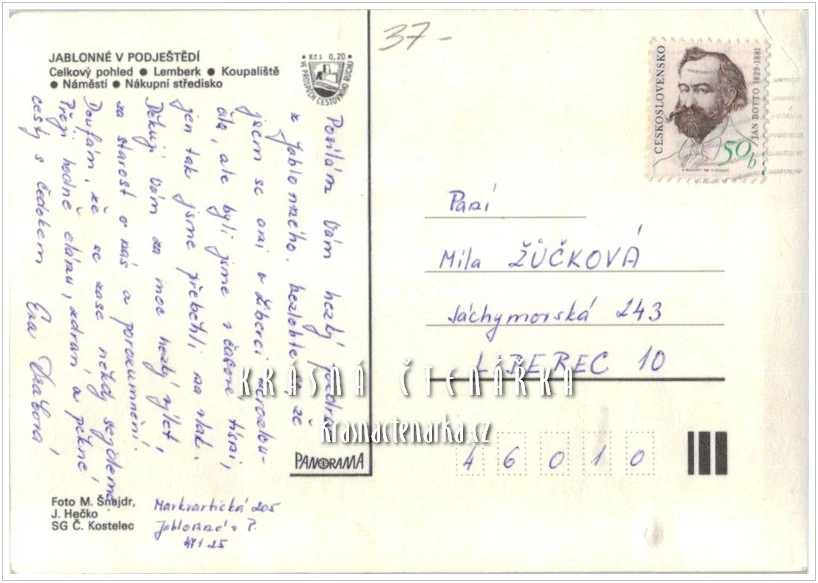 37-
JABLONNÉ V PODJEŠTĚDÍ
Celkový pohled ● Lemberk ● Koupaliště
● Náměstí ● Nákupní středisko
Kčs 0,20
VE PROSPĚCH CESTOVNÍHO RUCHU
ČESKOSLOVENSKO
JAN BOTTO 1829-1881
50h
Posílám Vám hezký pozdrav
z Jablonného.
jsem se ani v Liberci nerozlou-
čila, ale byli jsme v časové tísni,
jen tak jsme přeběhli na vlak.
Děkuji Vám za moc hezký výlet,
za starost o nás a porozumnění.
Doufám, že se zase někdy sejdeme.
Přeji hodně elánu, zdraví a pěkné
cesty s Čedokem Eva
Paní
Mila ŽŮČKOVÁ
Jáchymovská 243
LIBEREC 10
46010
KRÁSNÁ ČTENÁŘKA
krasnactenarka.cz
PANORAMA
Foto M. Šnajdr,
J. Hečko
SG Č. Kostelec
Markvartická 205
Jablonné v P.
471 25